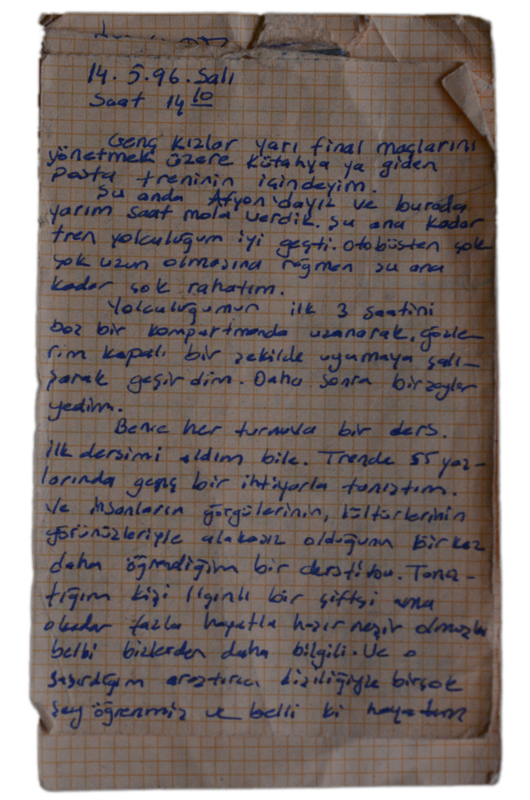 14.5.96.Salı
Saat 14 10
Genç Kızlar yarı final maçlarını
yönetmek üzere Kütahya ya giden
Posta treninin içindeyim.
Şu anda Afyon'dayız ve burada
yarım saat mola verdik. Şu ana kadar
tren yolculuğum iyi geçti. Otobüsten çok
çok uzun olmasına rağmen şu ana
kadar çok rahatım.
Yolculuğumun ilk 3 saatini
boş bir kompartmanda uzanarak, gözle-
rim kapalı bir şekilde uyumaya çalı-
şarak geçirdim. Daha sonra birşeyler
yedim.
Bence her turnuva bir ders.
İlk dersimi aldım bile. Trende 55 yaş-
larında genç bir ihtiyarla tanıştım.
Ve insanların görgülerinin, kültürlerinin
görünüşleriyle alakasız olduğunu birkez
daha öğrendiğim bir derstibu. Tanış-
tığım kişi Ilgınlı bir çiftçi ama
okadar fazla hayatla haşır neşir olmuşki
belki bizlerden daha bilgili. Ve o
şaşırdığım araştırıcı kişiliğiyle birçok
şey öğrenmiş ve belli ki hayatını